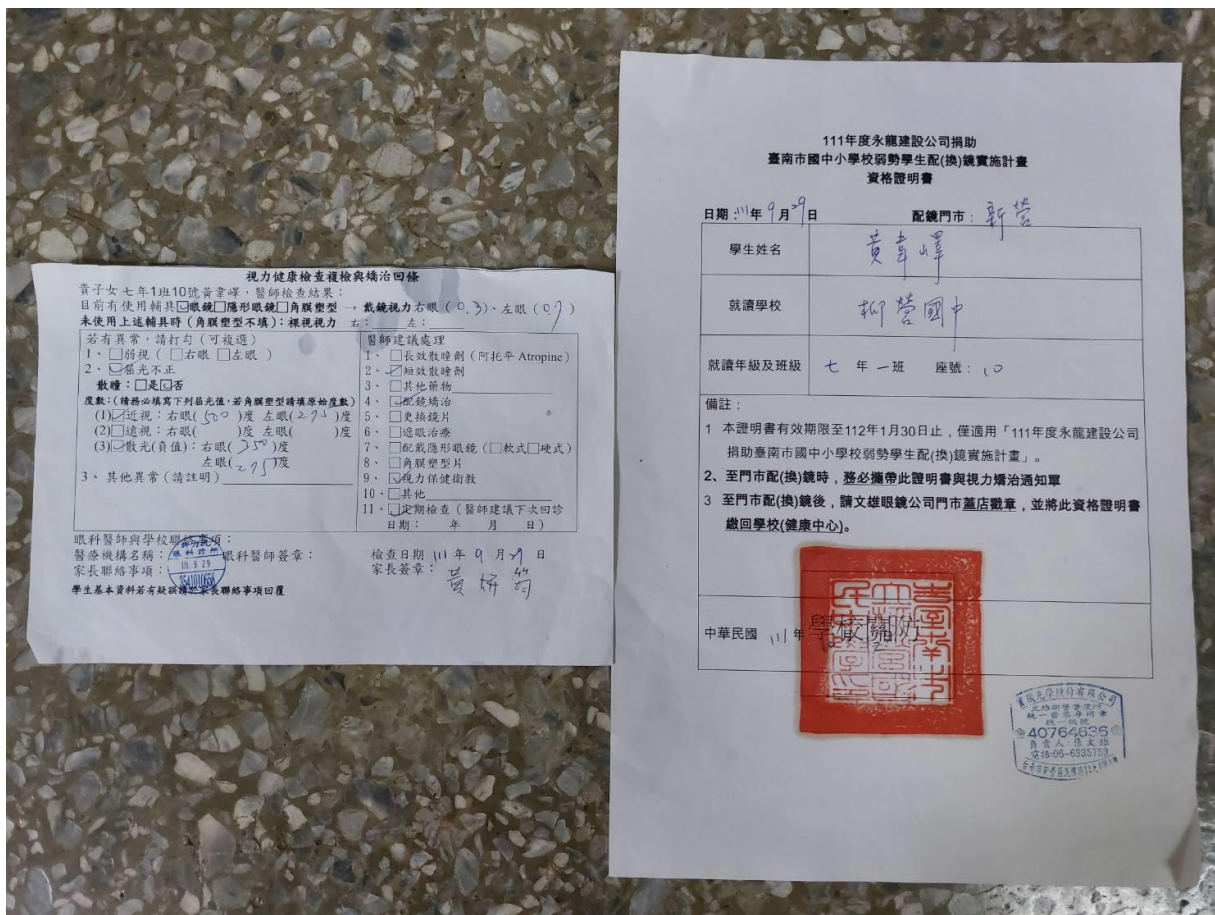 視力健康檢查複檢與矯治回條
貴子女七年1班10號黃韋嶧，醫師檢查結果：
目前有使用輔具☑眼鏡□隱形眼鏡□角膜塑型 → 戴鏡視力右眼(0.3)、左眼(0.7)
未使用上述輔具時(角膜塑型不填)：裸視視力 右：　左：
若有異常，請打勾(可複選)
1、□弱視(□右眼 □左眼)
2、☑屈光不正
散瞳：□是☑否
度數：(請務必填寫下列屈光值，若角膜塑型請填原始度數)
(1)☑近視：右眼(500)度 左眼(275)度
(2)□遠視：右眼(　)度 左眼(　)度
(3)☑散光(負值)：右眼(350)度
左眼(275)度
3、其他異常(請註明)
醫師建議處理
1、□長效散瞳劑(阿托平 Atropine)
2、☑短效散瞳劑
3、□其他藥物
4、☑配鏡矯治
5、□更換鏡片
6、□遮眼治療
7、□配戴隱形眼鏡(□軟式□硬式)
8、□角膜塑型片
9、☑視力保健衛教
10、□其他
11、☑定期檢查(醫師建議下次回診
日期：　年　月　日)
眼科醫師與學校聯絡事項：
醫療機構名稱：
眼科診所
眼科醫師簽章：
檢查日期 111年9月29日
111.9.29
家長聯絡事項：
家長簽章：黃妍筠
學生基本資料若有疑誤請於家長聯絡事項回覆
111年度永龍建設公司捐助
臺南市國中小學校弱勢學生配(換)鏡實施計畫
資格證明書
日期：111年9月29日 配鏡門市：新營
學生姓名 黃韋嶧
就讀學校 柳營國中
就讀年級及班級 七 年 一班 座號：10
備註：
1 本證明書有效期限至112年1月30日止，僅適用「111年度永龍建設公司
捐助臺南市國中小學校弱勢學生配(換)鏡實施計畫」。
2、至門市配(換)鏡時，務必攜帶此證明書與視力矯治通知單
3 至門市配(換)鏡後，請文雄眼鏡公司門市蓋店戳章，並將此資格證明書
繳回學校(健康中心)。
中華民國 111年
學校關防
臺南市
立柳營國
民中學印
光學股份有限公司
統一發票專用章
統一編號
40764636
負責人：張文雄
電話:06-6335753